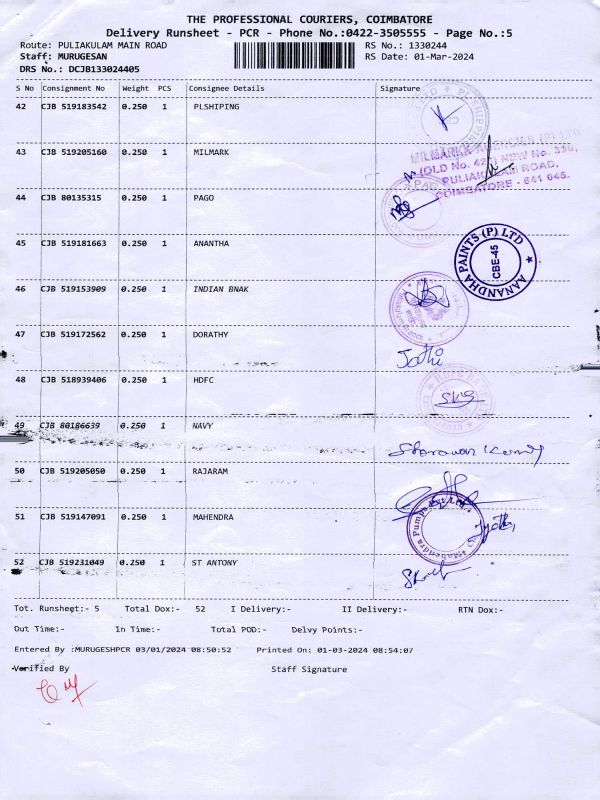 THE PROFESSIONAL COURIERS, COIMBATORE
Delivery Runsheet - PCR - Phone No.:0422-3505555 - Page No.:5
Route: PULIAKULAM MAIN ROAD RS No.: 1330244
Staff: MURUGESAN RS Date: 01-Mar-2024
DRS No.: DCJB133024405
S No Consignment No Weight PCS Consignee Details Signature
42 CJB 519183542 0.250 1 PLSHIPING
43 CJB 519205160 0.250 1 MILMARK
MILMARKK AGENCIES (P) LTD
(OLD No. 427) NEW No. 330,
PULIAKULAM ROAD,
COIMBATORE - 641 045.
44 CJB 80135315 0.250 1 PAGO
45 CJB 519181663 0.250 1 ANANTHA
AANANDHA PAINTS (P) LTD
CBE-45
46 CJB 519153909 0.250 1 INDIAN BNAK
47 CJB 519172562 0.250 1 DORATHY
Jothi
48 CJB 518939406 0.250 1 HDFC
49 CJB 80186639 0.250 1 NAVY
50 CJB 519205050 0.250 1 RAJARAM
51 CJB 519147091 0.250 1 MAHENDRA
Mahendra Pumps Pvt Ltd.
52 CJB 519231049 0.250 1 ST ANTONY
Tot. Runsheet:- 5 Total Dox:- 52 I Delivery:- II Delivery:- RTN Dox:-
Out Time:- In Time:- Total POD:- Delvy Points:-
Entered By :MURUGESHPCR 03/01/2024 08:50:52 Printed On: 01-03-2024 08:54:07
Verified By Staff Signature